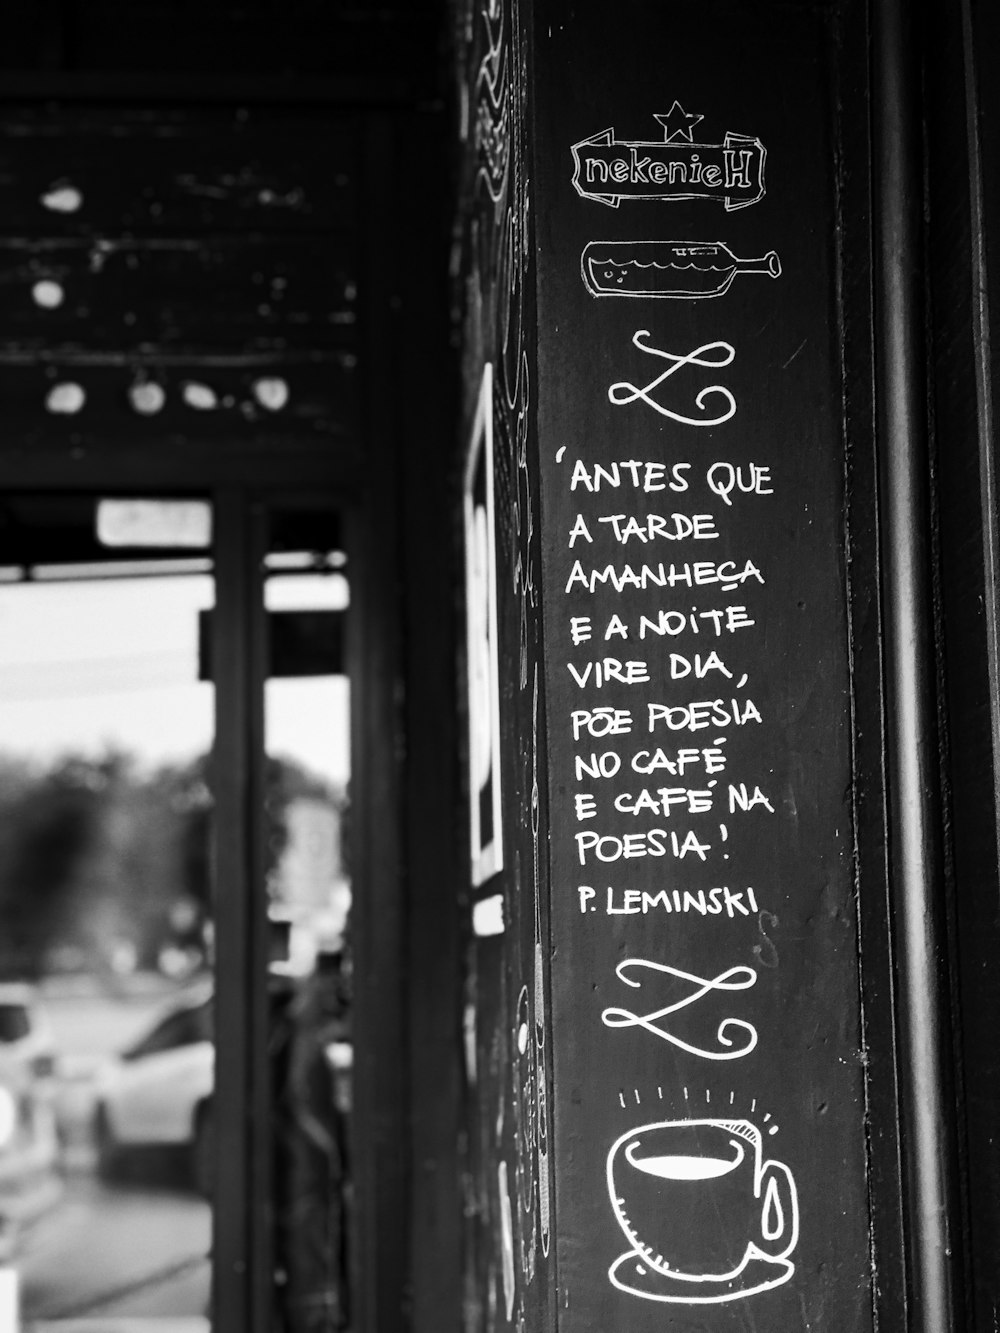 nekenieH
'ANTES QUE
A TARDE
AMANHEÇA
E A NOITE
VIRE DIA,
PÕE POESIA
NO CAFÉ
E CAFÉ NA
POESIA!
P. LEMINSKI